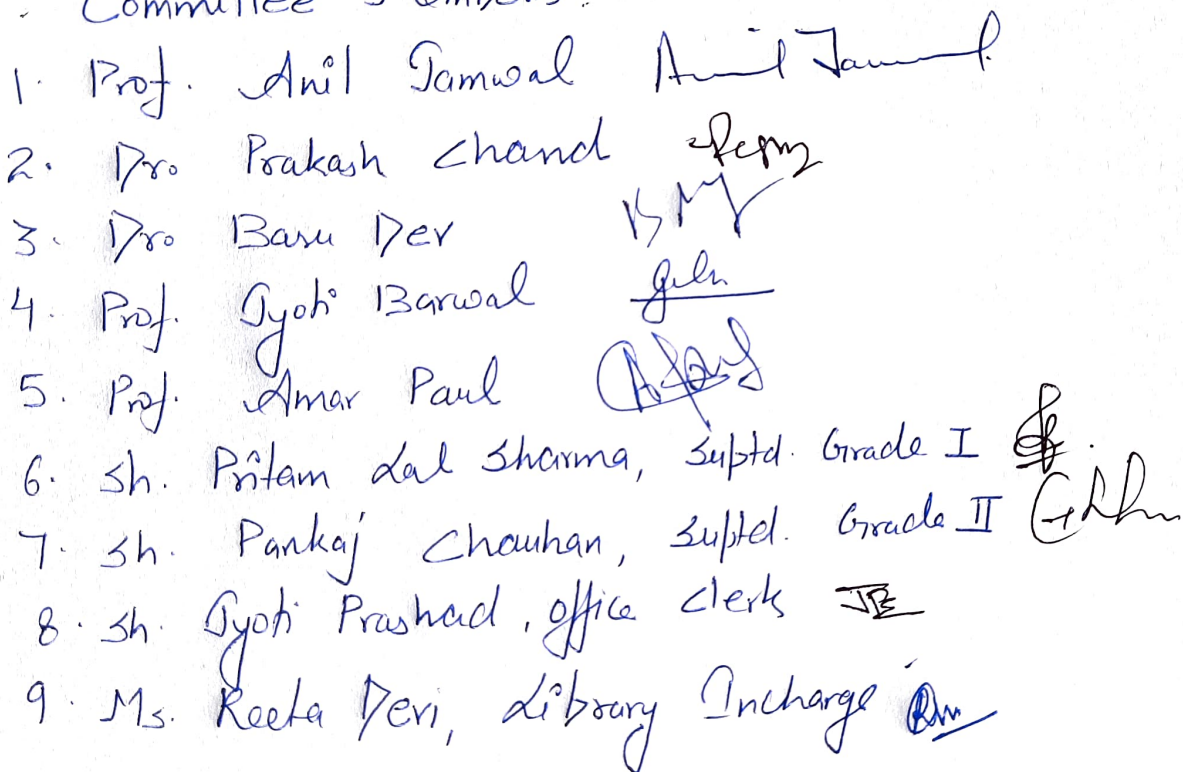 Committee Members:
1. Prof. Anil Jamwal Anil Jamwal
2. Dr. Prakash Chand
3. Dr. Basu Dev
4. Prof. Jyoti Barwal
5. Prof. Amar Paul
6. Sh. Pritam Lal Sharma, Suptd. Grade I
7. Sh. Pankaj Chauhan, Suptd. Grade II
8. Sh. Jyoti Prashad, office clerk
9. Ms. Reeta Devi, Library Incharge